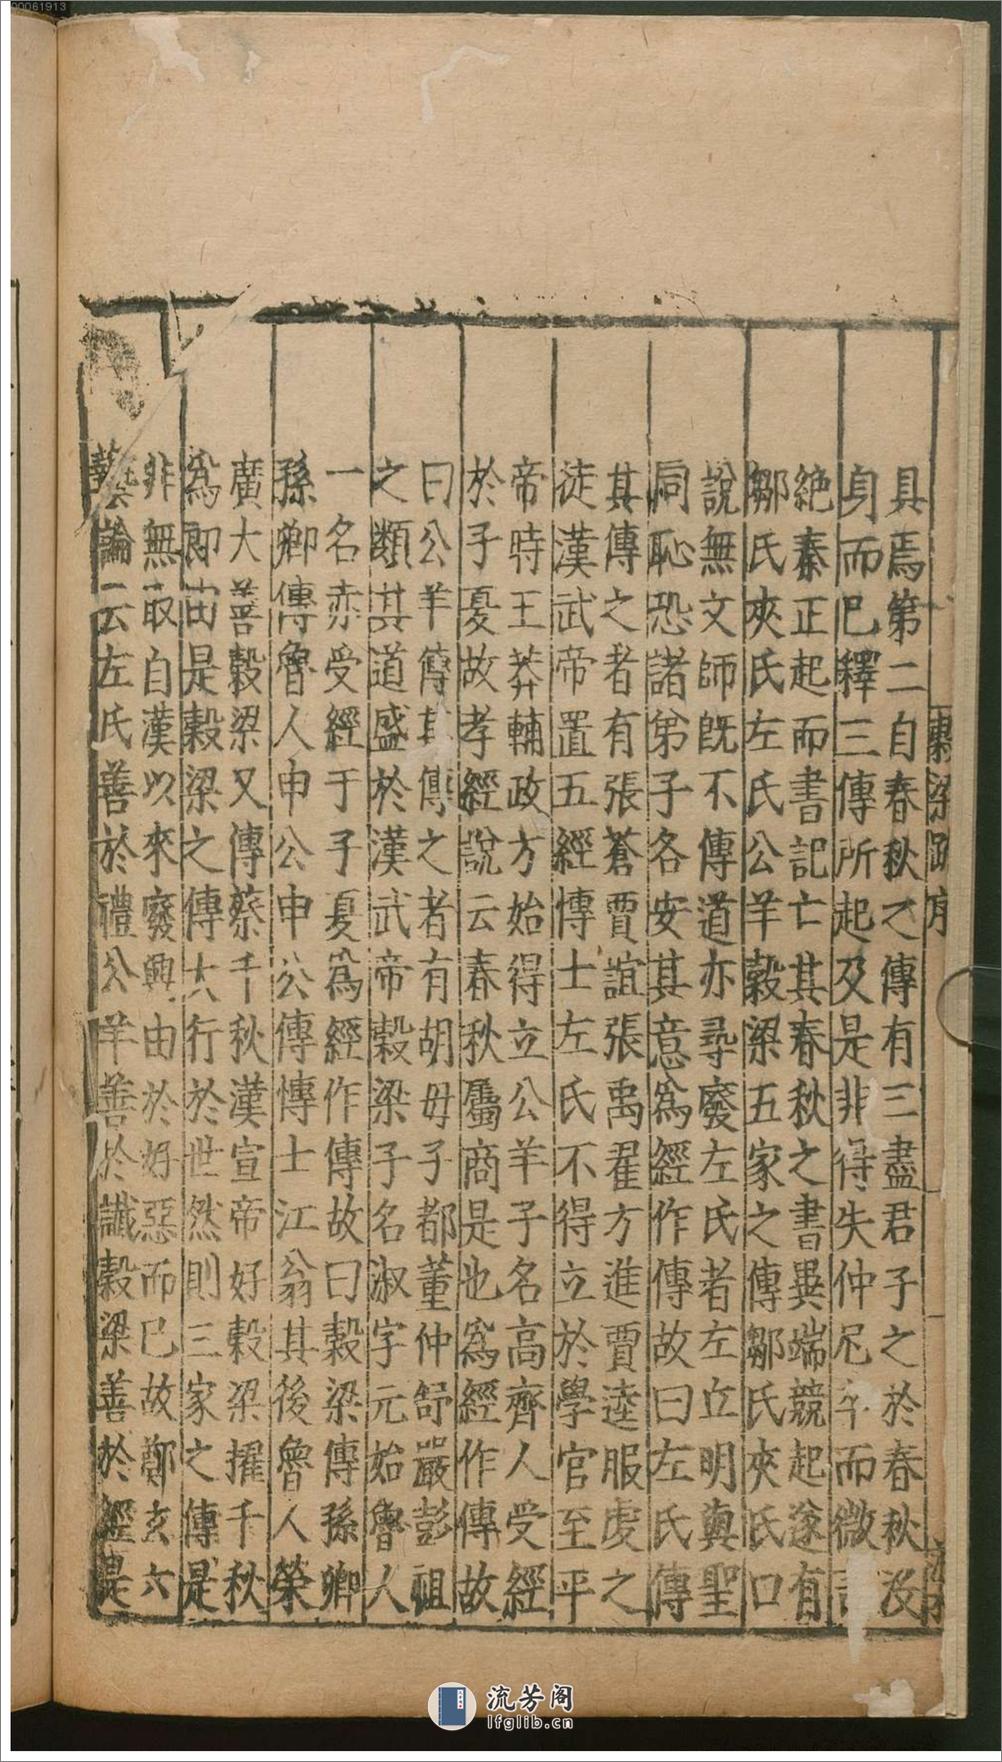 具焉第二自春秋之傳有三盡君子之於春秋沒
身而已釋三傳所起及是非得失仲尼卒而微言
絕秦正起而書記亡其春秋之書異端競起遂有
鄒氏夾氏左氏公羊穀梁五家之傳鄒氏夾氏口
說無文師旣不傳道亦尋廢左氏者左丘明與聖
同恥恐諸弟子各安其意爲經作傳故曰左氏傳
其傳之者有張蒼賈誼張禹翟方進賈逵服虔之
徒漢武帝置五經博士左氏不得立於學官至平
帝時王莽輔政方始得立公羊子名高齊人受經
於子夏故孝經說云春秋屬商是也爲經作傳故
曰公羊傳其傳之者有胡毋子都董仲舒嚴彭祖
之類其道盛於漢武帝穀梁子名淑字元始魯人
一名赤受經于子夏爲經作傳故曰穀梁傳孫卿
孫卿傳魯人申公申公傳博士江翁其後魯人榮
廣大善穀梁又傳蔡千秋漢宣帝好穀梁擢千秋
爲郎由是穀梁之傳大行於世然則三家之傳是
非無取自漢以來廢興由於好惡而已故鄭玄六
藝論云左氏善於禮公羊善於讖穀梁善於經是
穀梁疏序
00061913
流芳阁
lfglib.cn